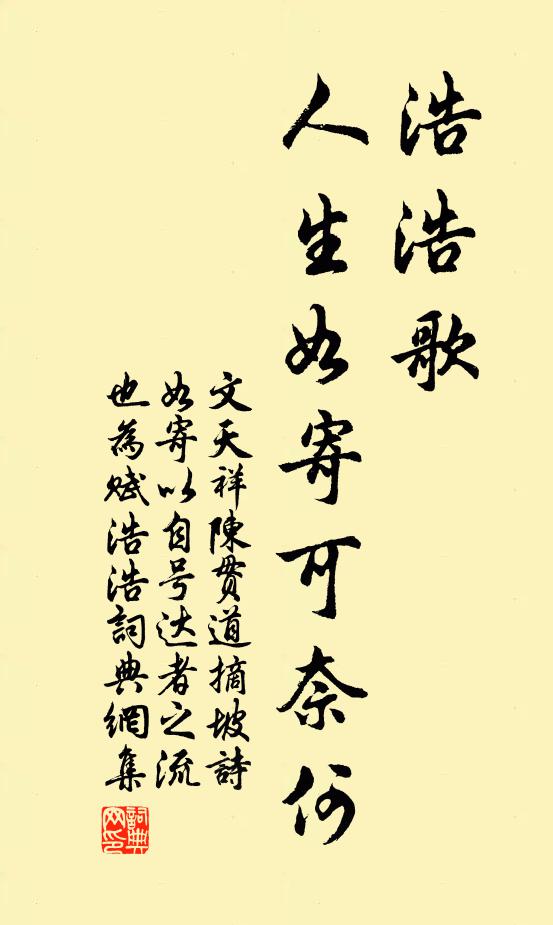 浩浩歌
人生如寄可奈何
文天祥陳貫道摘坡詩
如寄以自号达者之流
也為赋浩浩詞典網集
詞典
网印